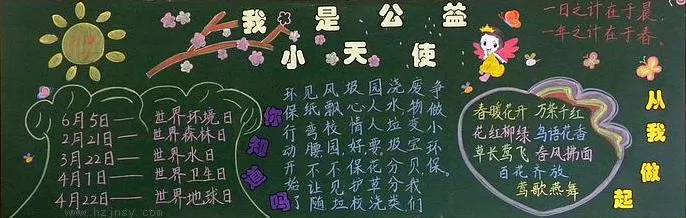 我是公益
小天使
一日之计在于晨
一年之计在于春。
6月5日——世界环境日
2月21日——世界森林日
3月22日——世界水日
4月7日——世界卫生日
4月22日——世界地球日
你知道吗
环保行动开始了
见纸弯腰不让随
风飘校园不见垃
圾心情好保护校
园人人要花草浇
浇水垃圾分分类
废物变宝贝我们
争做小环保。
春暖花开 万紫千红
花红柳绿 鸟语花香
草长莺飞 春风拂面
百花齐放
莺歌燕舞
从我做起
www.hzjnsy.com